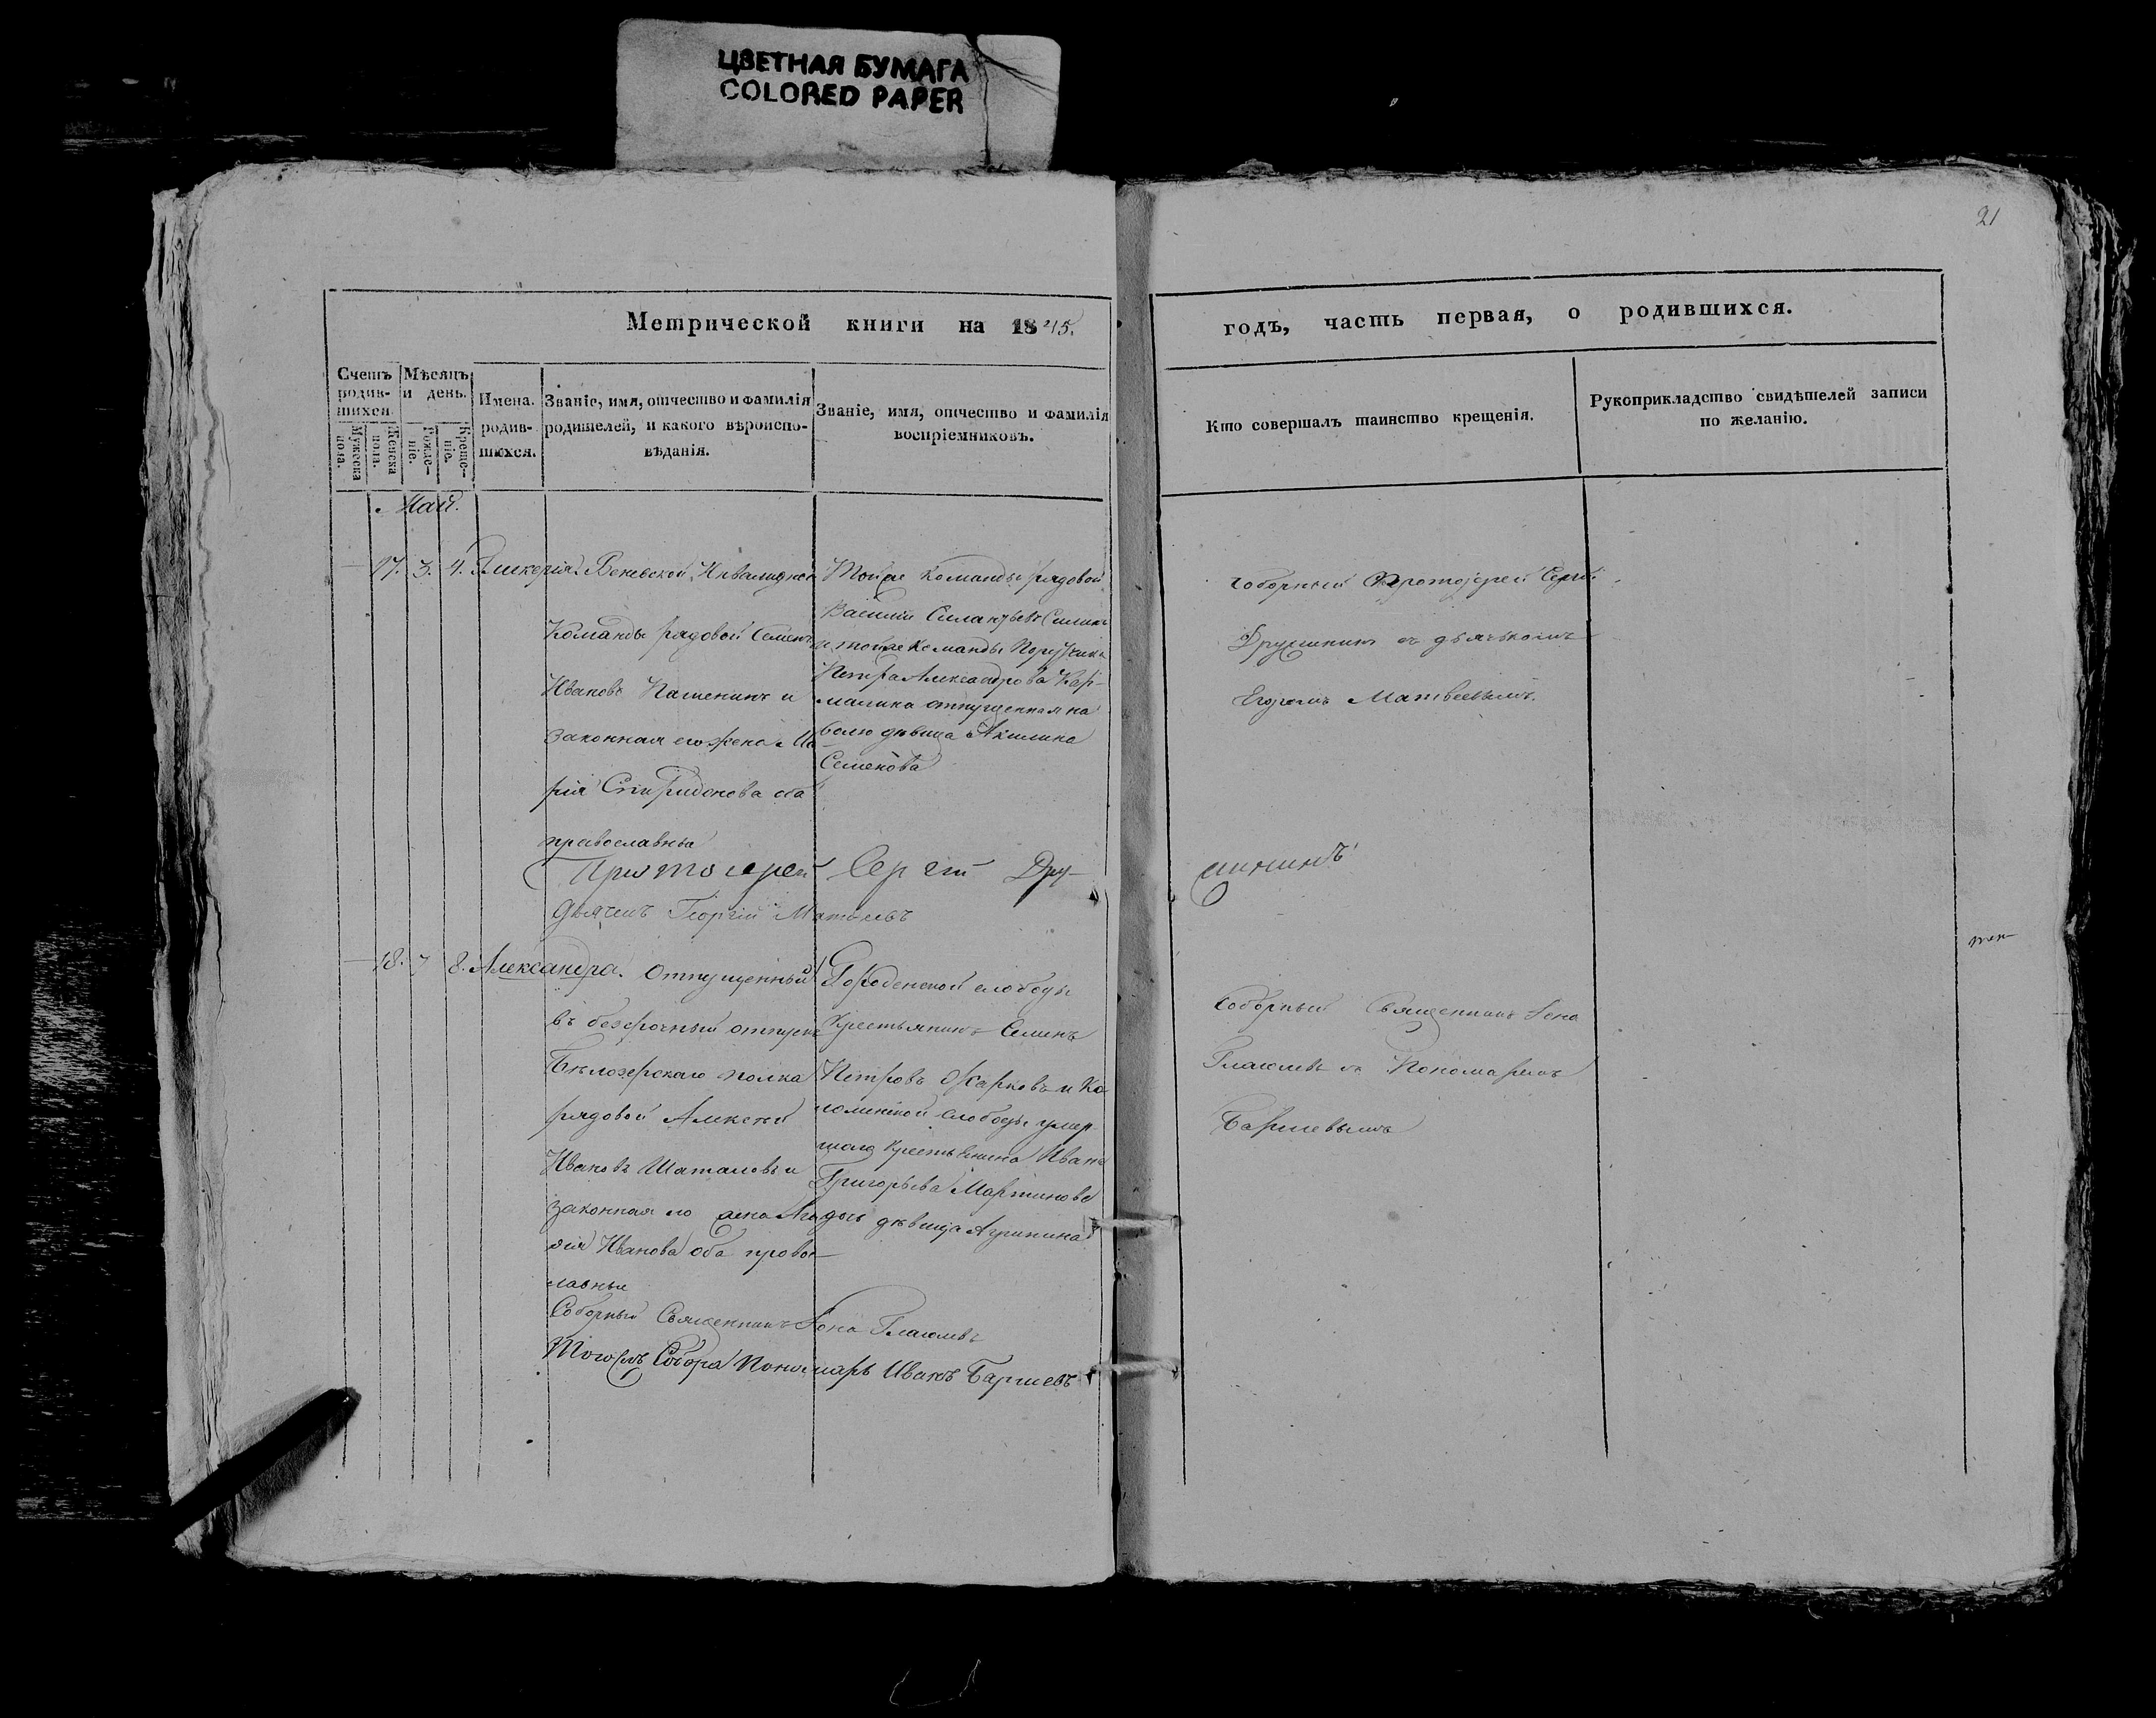 ЦВЕТНАЯ БУМАГА
COLORED PAPER
21
Метрической книги на 1845.
годъ, часть первая, о родившихся.
Счетъ родив-шихся.
Мужеска пола.
Женска пола.
Мѣсяцъ и день.
Рожде-ніе.
Креще-ніе.
Имена родив-шихся.
Званіе, имя, отчество и фамилія
родителей, и какого вѣроиспо-
вѣданія.
Званіе, имя, отчество и фамилія
воспріемниковъ.
Кто совершалъ таинство крещенія.
Рукоприкладство свидѣтелей записи
по желанію.
Май.
17. 3. 4.
Веневской Инвалидной
Команды рядовой Семенъ
Ивановъ и
законная его жена Ма
рія Спиридонова оба
православны
Тойже Команды рядовой
Василій Силантьевъ
и тойже Команды
Петра Александрова Кар-
малина отпущенная на
волю дѣвица Акилина
Семенова
Соборный Протоіерей Сергій
Дружининъ съ дьячькомъ
Егоромъ Матвеевымъ.
Протоіерей Сергій Дру-
жининъ
Дьячекъ Георгій Матвеевъ
18. 7 8. Александра.
Отпущенный
въ безсрочный отпускъ
Бѣлозерскаго полка
рядовой Алексей
Ивановъ Шаталовъ и
законная его жена Ага
фія Иванова оба право
славные
Городенской слободы
Крестьянинъ Семенъ
Петровъ Жарковъ и Ко
ломенской слободы умер
шаго крестьянина Ивана
Григорьева Мартинова
дочь дѣвица Агрипина
Соборный Священникъ Іона
Глаголевъ съ Пономаремъ
Баршевымъ
Соборный Священникъ Іона Глаголевъ
Тогожъ Собора Пономарь Иванъ Баршевъ